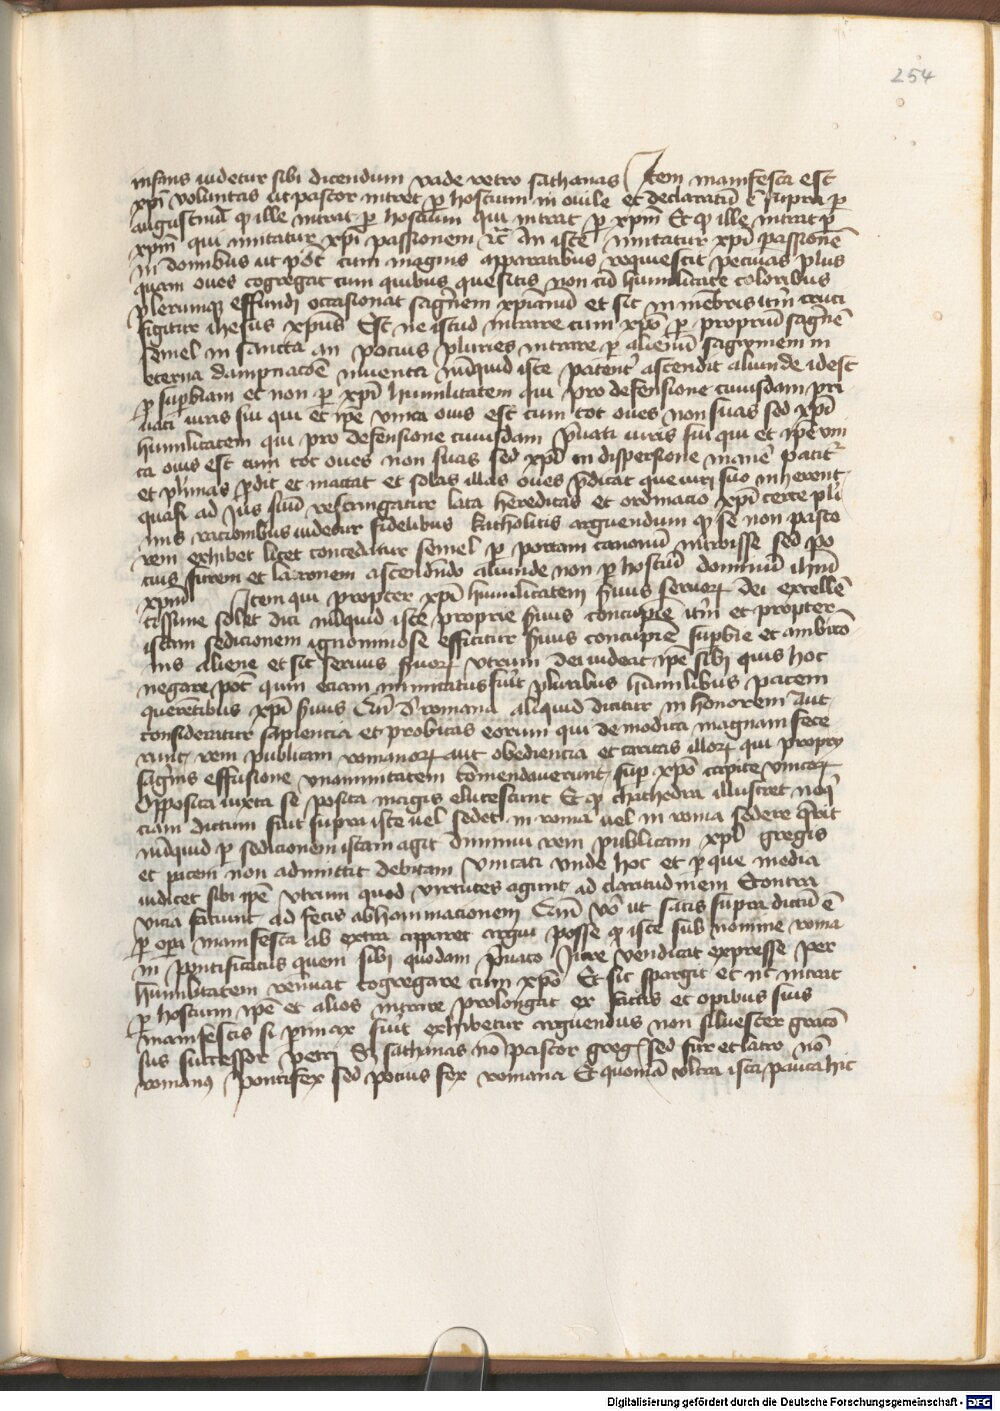 254
infans uidetur sibi dicendum vade retro sathanas Item manifesta est
xpi voluntas ut pastor intret per hostium in ouile et declaratu est supra per
augustinu qd ille intrat per hostium qui intrat per xpm Et qd ille intrat per
xpm qui imitatur xpi passionem etc An iste imitatur xpi passione
in domibus ut pot cum magnis apparatibus requiescit pecuias plus
quam oues cogregat cum quibus quesitis non cu humilitate coloribus
plerumqz effundi occasionat sagnem xpianu et sic in mebris itm cruci
figitur ihesus xpus Est ne istud intrare cum xpo per propriu sagne
semel in sancta an pocius pluries intrare per alienu sagwinem in
eterna dampnacoe inuenta nuquid iste patent ascendit aliunde idest
per supbiam et non per xpi humilitatem qui pro defensione cuiusdam pri
uati iuris sui qui et ipe vnica ouis est cum tot oues non suas sed xpi
humilitatem qui pro defensione cuiusdam pruati iuris sui qui et ipe vni
ca ouis est cum tot oues non suas sed xpi in dispersione mane patitr
et plimas pdit et mactat et solas illas oues pdicat que iuri suo inherent
quasi ad Jus suu restringatur lata hereditas et ordinacio xpi certe pli
mis racionibus uidetur fidelibus katholicis arguendum qd se non pasto
rem exhibet licet concedatur semel per portam canonu introisse sed po
cius furem et latronem ascendendo aliunde non per hostiu dominu ihm
xpm Item qui propter xpi humilitatem suus seruorum dei excelle
tissime solet dici nuquid iste proprie suus concupie itm et propter
istam sedicionem ignominiose efficitur suus concupie supbie et ambico
nis aliene et sic seruus suorum vtrum dei iudicet ipe sibi quis hoc
negare pot quin eciam inimicatus fuit pluribus humilibus pacem
querentibus xpi suus Cu romana aliquid dicitur in honorem aut
consideratur sapiencia et probitas eorum qui de modica magnam fece
runt rem publicam romanorum aut obediencia et caritas illorum qui proprij
sagnis effusione vnanimitatem comendauerunt sup xpo capite vnicorum
Opposita iuxta se posita magis elucescunt Et qd chathedra illustret
ciam dictum fuit supra iste uel sedet in roma uel in roma sedere querit
nuquid per sedicionem istam agit rem publicam xpi gregis
et pacem non admittit debitam vnitati vnde hoc et per que media
iudicet sibi ipe vtrum quod virtutes agunt ad claritudinem Econtra
vicia faciunt ad fecis abhominacionem Cum vo ut satis supra dictu e
per opera manifesta ab extra apparet argui posse qd iste sub nomine roma
ni pontificatus quem sibi quodam pruato Jure vendicat expresse per
humilitatem renuat cogregare cum xpo Et sic spargit et nec intrat
per hostium ipe et alios intrare prolongat ex factis et opibus suis
manifestis si ptinax fuit exhibetur arguendus non siluester
sus successor petri sathanas no pastor greg sed fur et latro no
romanus pontifex sed pocius fex romana Et quoniam vltra ista pauca hic
Digitalisierung gefördert durch die Deutsche Forschungsgemeinschaft - DFG